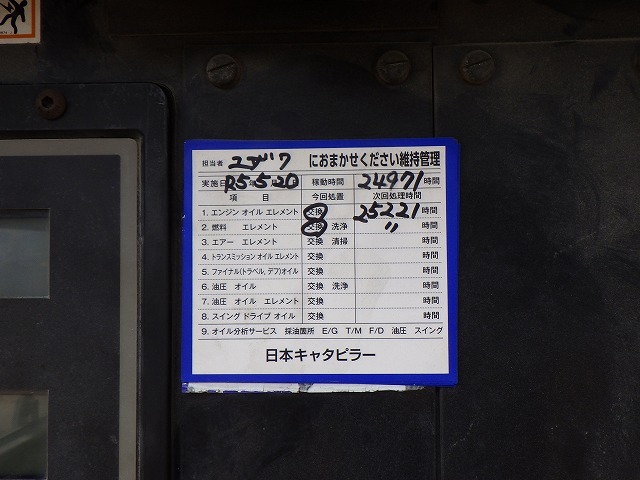 担当者 ユザワ におまかせください維持管理
実施日 R5.5.20 稼動時間 24971時間
項 目 今回処置 次回処理時間
1. エンジン オイル エレメント 交換 25221時間
2. 燃料 エレメント 交換 洗浄 〃 時間
3. エアー エレメント 交換 清掃 時間
4. トランスミッション オイル エレメント 交換 時間
5. ファイナル(トラベル, デフ)オイル 交換 時間
6. 油圧 オイル 交換 洗浄 時間
7. 油圧 オイル エレメント 交換 時間
8. スイング ドライブ オイル 交換 時間
9. オイル分析サービス 採油箇所 E/G T/M F/D 油圧 スイング
日本キャタピラー